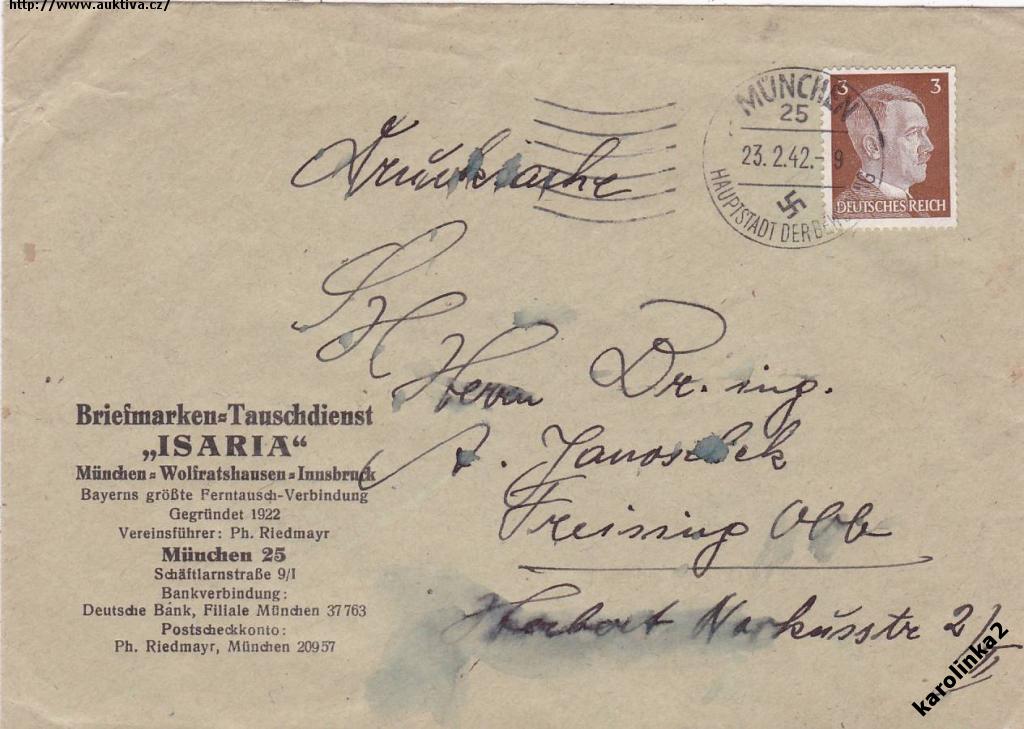 http://www.auktiva.cz/
MÜNCHEN
25
23.2.42.-9
HAUPTSTADT DER BEWEGUNG
3 3
DEUTSCHES REICH
Drucksache
Herrn Dr. ing.
A. Janoschek
Freising Obb
Herbert Norkusstr 2/
Briefmarken=Tauschdienst
„ISARIA“
München=Wolfratshausen=Innsbruck
Bayerns größte Ferntausch-Verbindung
Gegründet 1922
Vereinsführer: Ph. Riedmayr
München 25
Schäftlarnstraße 9/I
Bankverbindung:
Deutsche Bank, Filiale München 37763
Postscheckkonto:
Ph. Riedmayr, München 20957
karolinka2